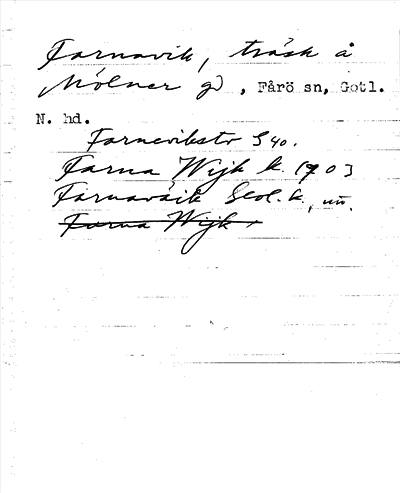 Farnavik, träsk å
Mölner g), Fårö sn, Gotl.
N. hd.
Farnevikstr S 40.
Farna Wijk k. 1703
Farnavik Skol. k.,
Farna Wijk